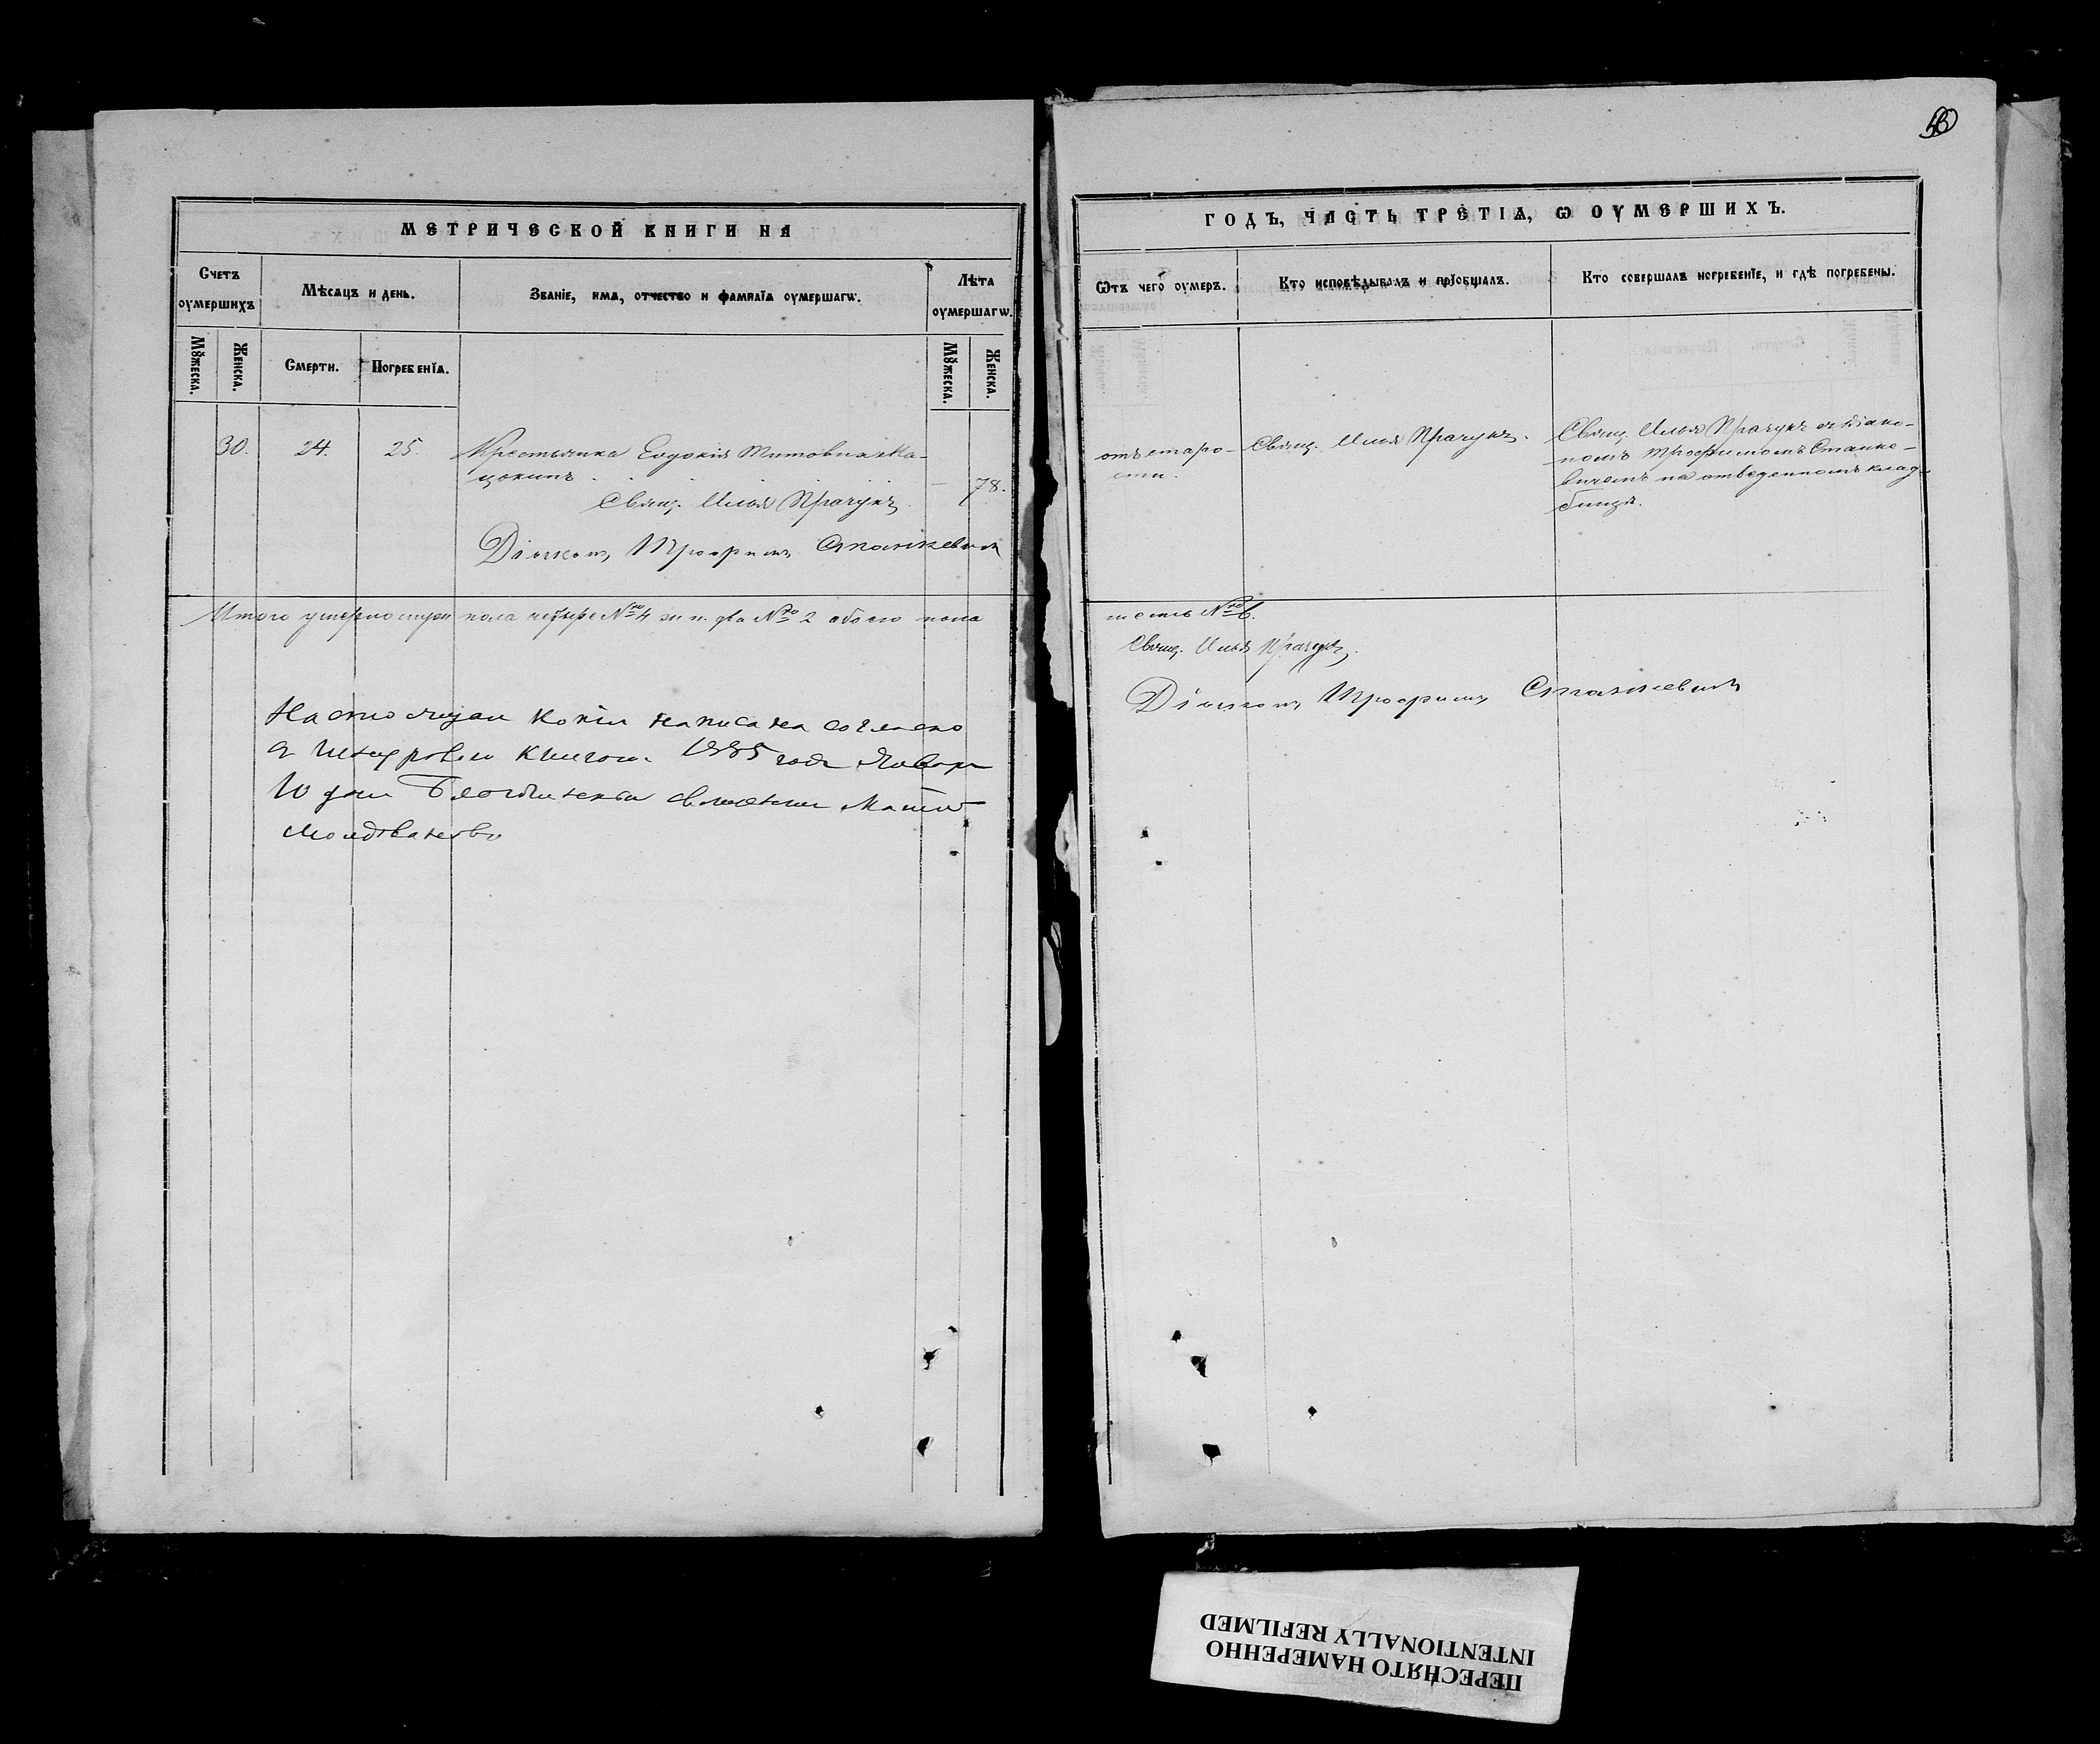 МЕТРИЧЕСКОЙ КНИГИ НА
Счетъ оумершихъ
Мѣсяцъ и день.
Званіе, имя, отчество и фамилїа оумершагω.
Лѣта оумершагω.
Мꙋжеска.
Женска.
Смерти.
Погребенїа.
Мꙋжеска.
Женска.
30.
24.
25.
Крестьянка Евдокія Титовна Ма-
цокинъ
— 78.
Свящ. Илья Прачукъ
Діаконъ Трофимъ Станкевичъ
Итого умерло муж пола четыре №ро 4 жен. п. два №ро 2 обоего пола
Настоящая копія написана согласно
съ шнуровою книгою. 1885 года Января
10 дня Благочинный священникъ
ГОДЪ, ЧАСТЬ ТРЕТІА, Ѡ ОУМЕРШИХЪ.
Ѿтъ чего оумеръ.
Кто исповѣдывалъ и прїобщалъ.
Кто совершалъ погребенїе, и гдѣ погребены.
отъ старо-
сти.
Свящ. Илья Прачукъ.
Свящ. Илья Прачукъ съ діако-
номъ Трофимомъ Станке-
вичемъ на отведенномъ клад-
бищѣ.
шесть №ро 6.
Свящ. Илья Прачукъ.
Діаконъ Трофимъ Станкевичъ
ПЕРЕСНЯТО НАМЕРЕННО
INTENTIONALLY REFILMED